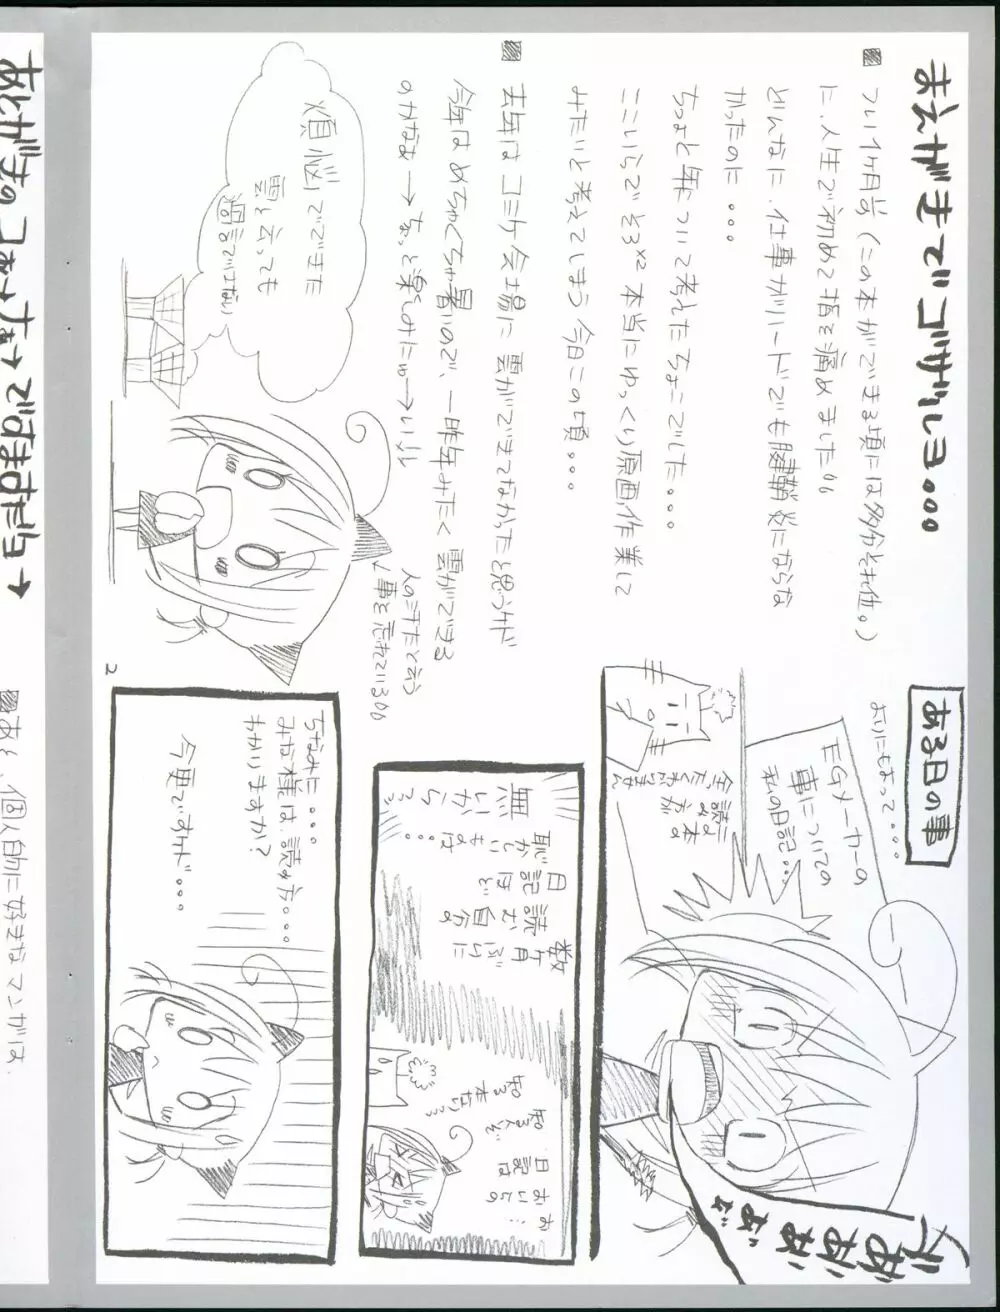 まえがきでゴザルヨ。。。。
■ つい1ヶ月前(この本ができる頃には多分それ位。)
に、人生で初めて指を痛めました。
どんなに、仕事がハードでも腱鞘炎にならな
かったのに・・・
ちょっと年ついて考えたちょこでした。。。。
ここいらでそろ×2 本当にゆっくり原画作業して
みたいと考えてしまう今日この頃。。。。
■ 去年はコミケ会場に雲ができてなかったと思うケド
今年はめちゃくちゃ暑いので、一昨年みたく雲ができる
のかなぁー→ちょっと楽しみにゅー→(い)ル
煩悩でできた
雲と言っても
過言ではない
人のネタだと言う
事を忘れている。
2
ある日の事
よりにもよって・・・
EGメーカーの
事についての
私の日記・・・
読み方が
全たくわかりません
ぎゃあああぁぁ
数ヶ月ぶりに
自分の
日記読むほど
恥かしいものは
無いからっっ
ちなみに・・・
みな様は、読み方・・・
わかりますか?
今更ですケド・・・
あとがきっコォーナァー→ですますだヨ→
■ あと、個人的に好きなマンガは、